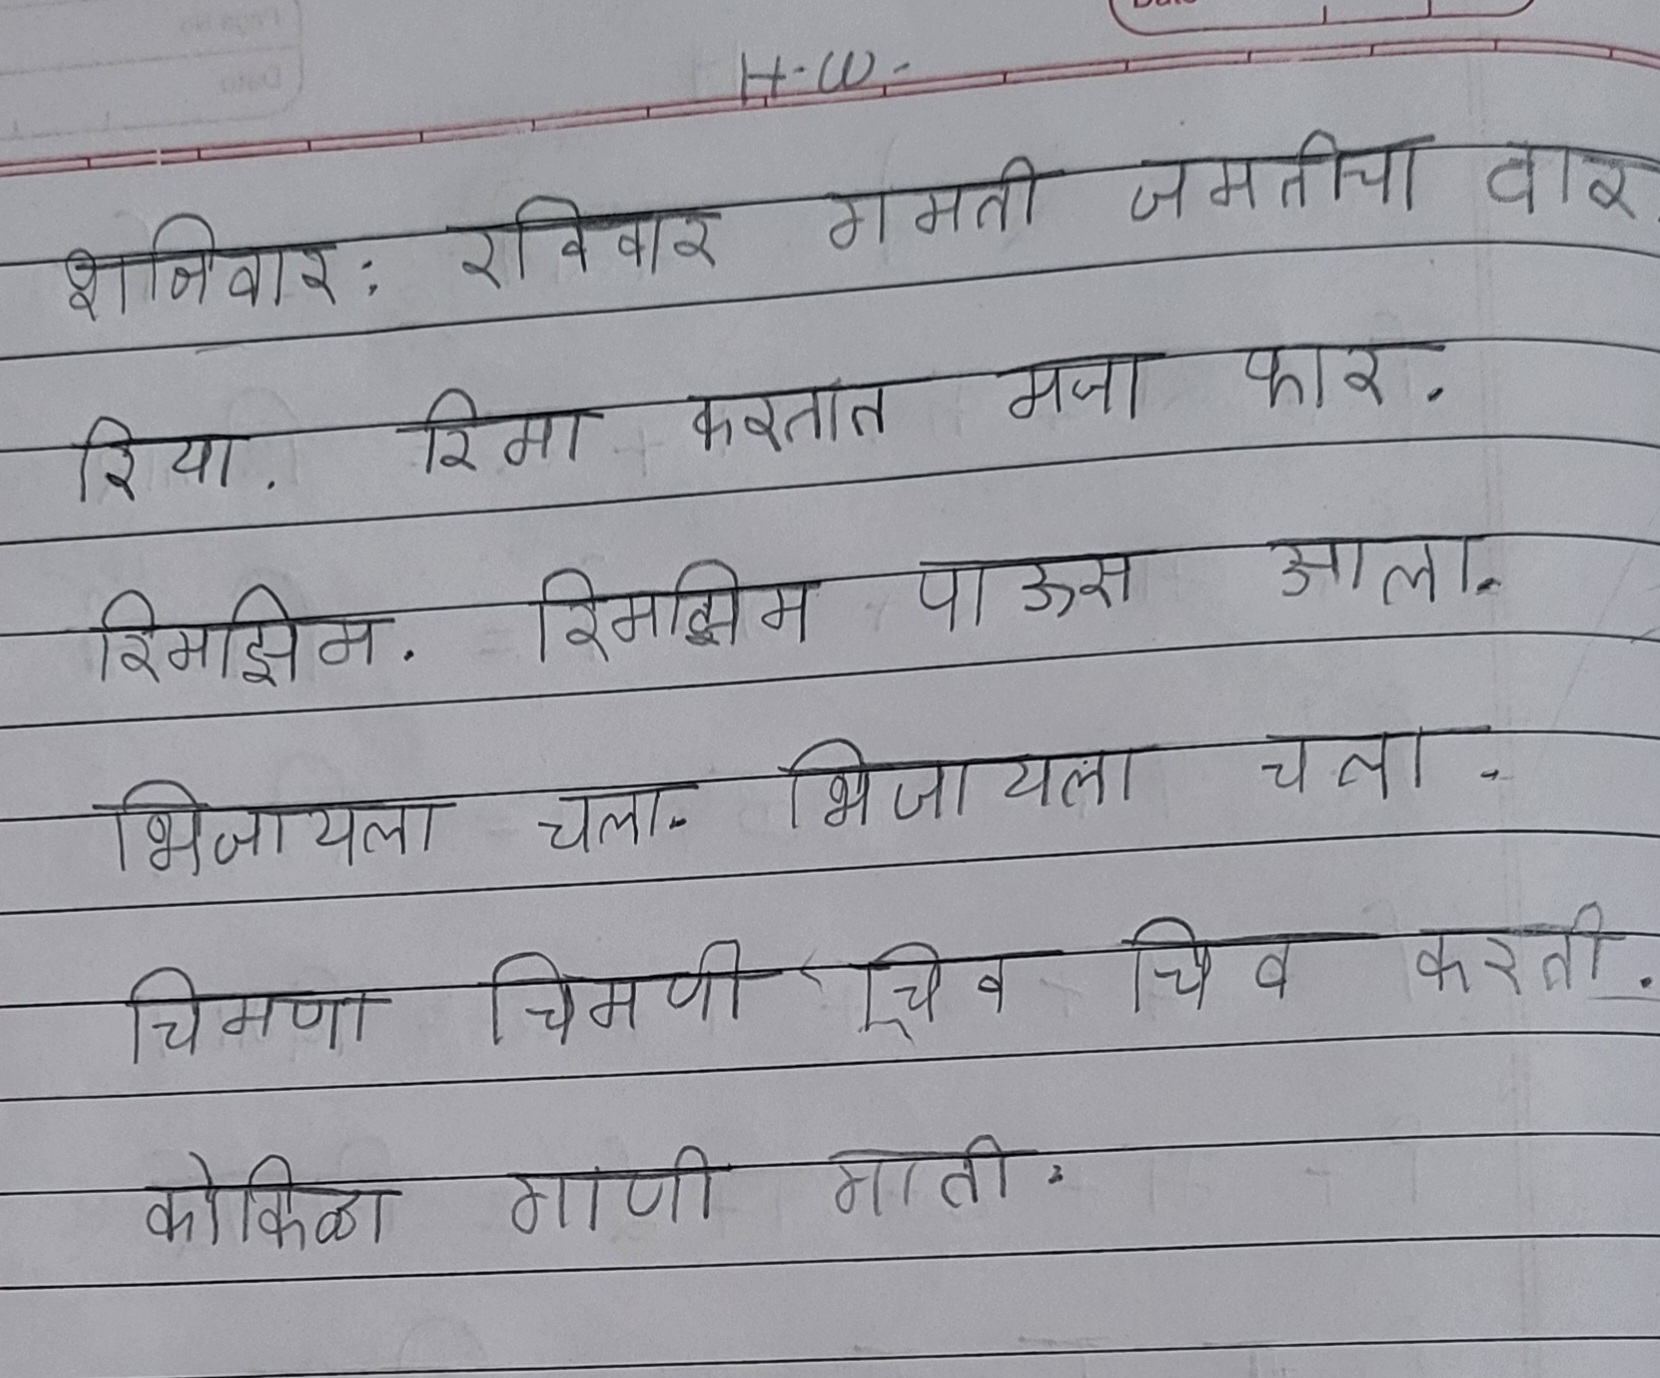 H.W.
शनिवार: रविवार गमती जमतीचा वार.
रिया. रिमा करतात मजा फार.
रिमझिम. रिमझिम पाऊस आला.
भिजायला चला. भिजायला चला.
चिमणा चिमणी चिव चिव करती.
कोकिळा गाणी गाती.